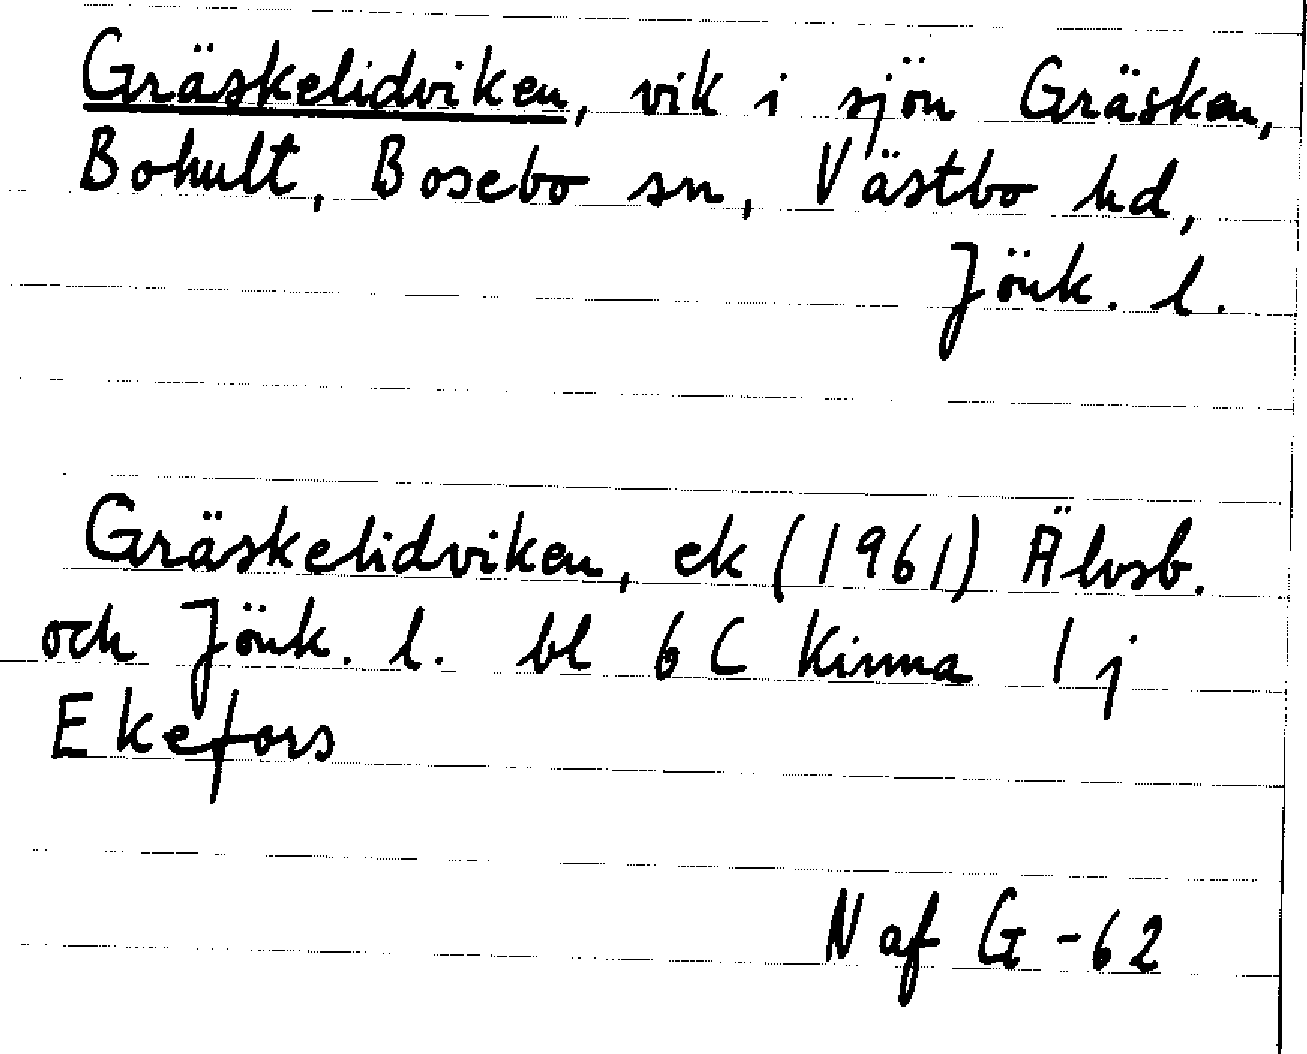 Gräskelidviken, vik i sjön Gräsken,
Bohult, Bosebo sn, Västbo hd,
Jönk. l.
Gräskelidviken, ek (1961) Älvsb.
och Jönk. l. bl 6 C Kinna 1 j
Ekefors
N af G -62